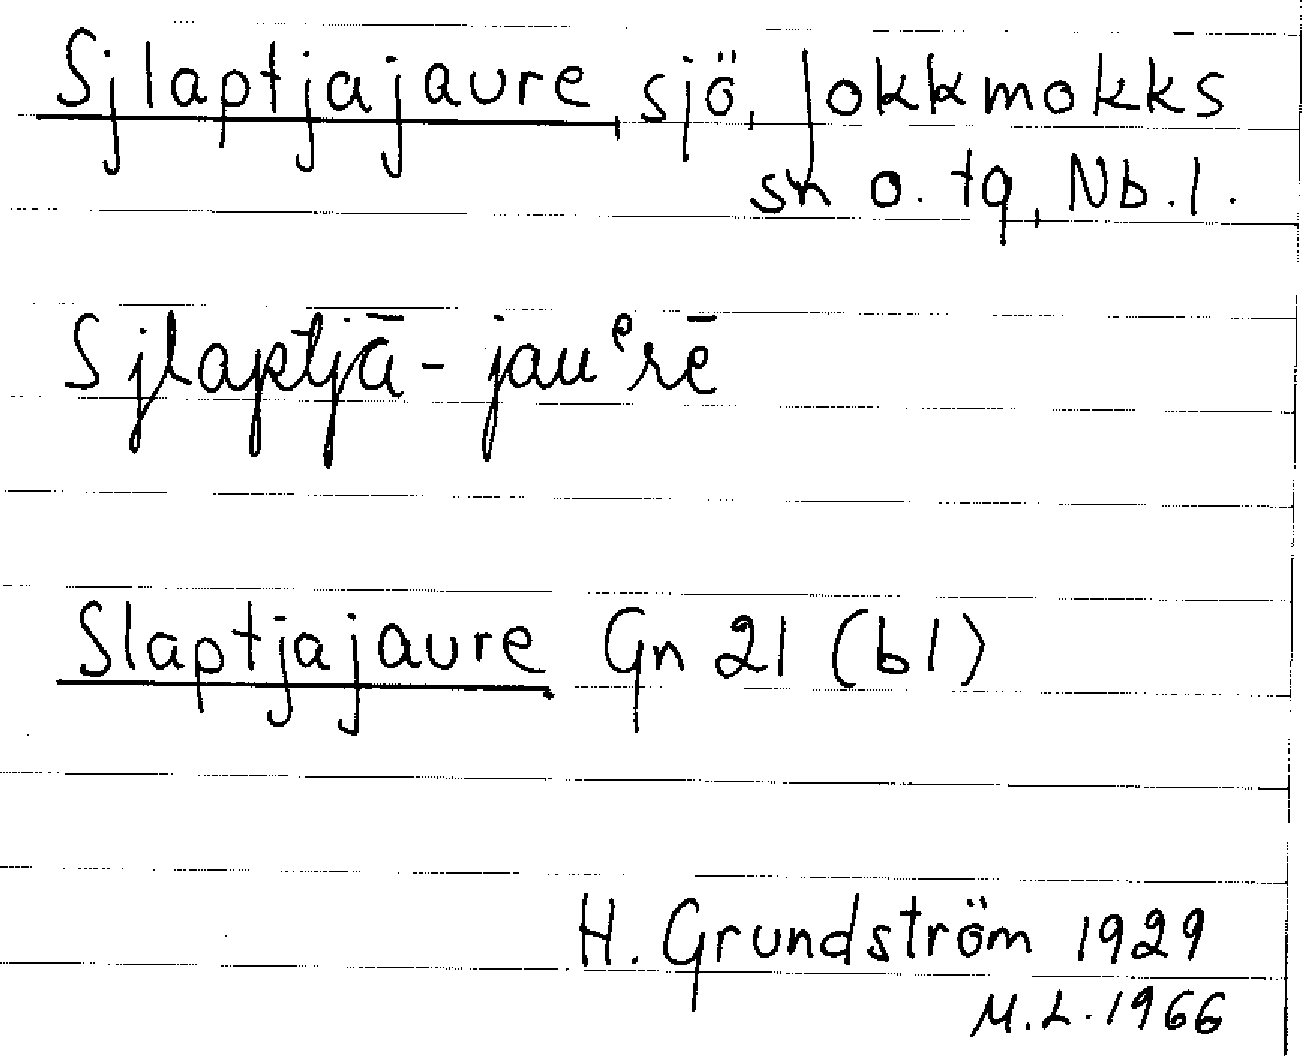 Sjlaptjajaure, sjö, Jokkmokks
sn o. tg, Nb.l.
Sjlaptjā-jauᵉrē
Slaptjajaure Gn 21 (bl)
H. Grundström 1929
M.L. 1966